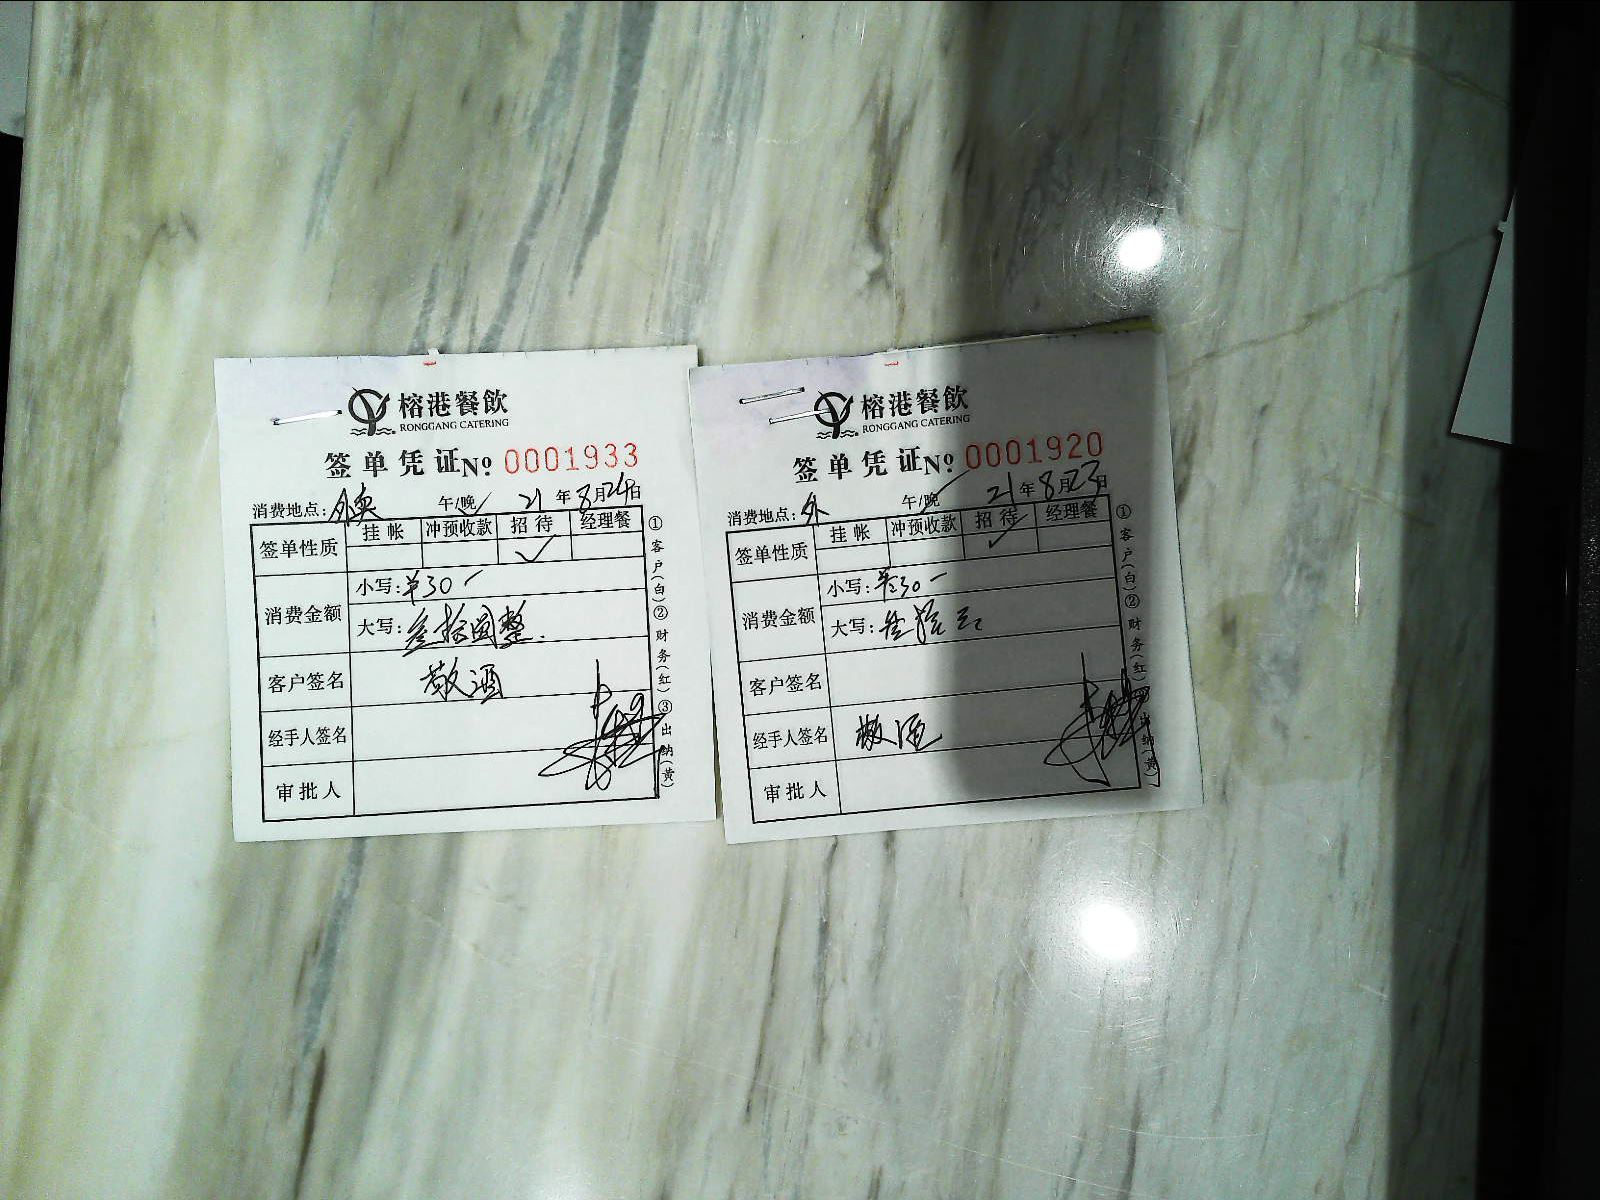 榕港餐飲
RONGGANG CATERING
签单凭证№ 0001933
消费地点: 外卖 午/晚 21年8月24日
签单性质 挂帐 冲预收款 招待 经理餐
✓
消费金额 小写: ¥30-
大写: 叁拾圆整.
客户签名 敬酒
经手人签名
审批人
①客户(白)②财务(红)③出纳(黄)
榕港餐飲
RONGGANG CATERING
签单凭证№ 0001920
消费地点: 外 午/晚 21年8月23日
签单性质 挂帐 冲预收款 招待 经理餐
✓
消费金额 小写: ¥30-
大写: 叁拾元
客户签名
经手人签名 敬酒
审批人
①客户(白)②财务(红) 出纳(黄)